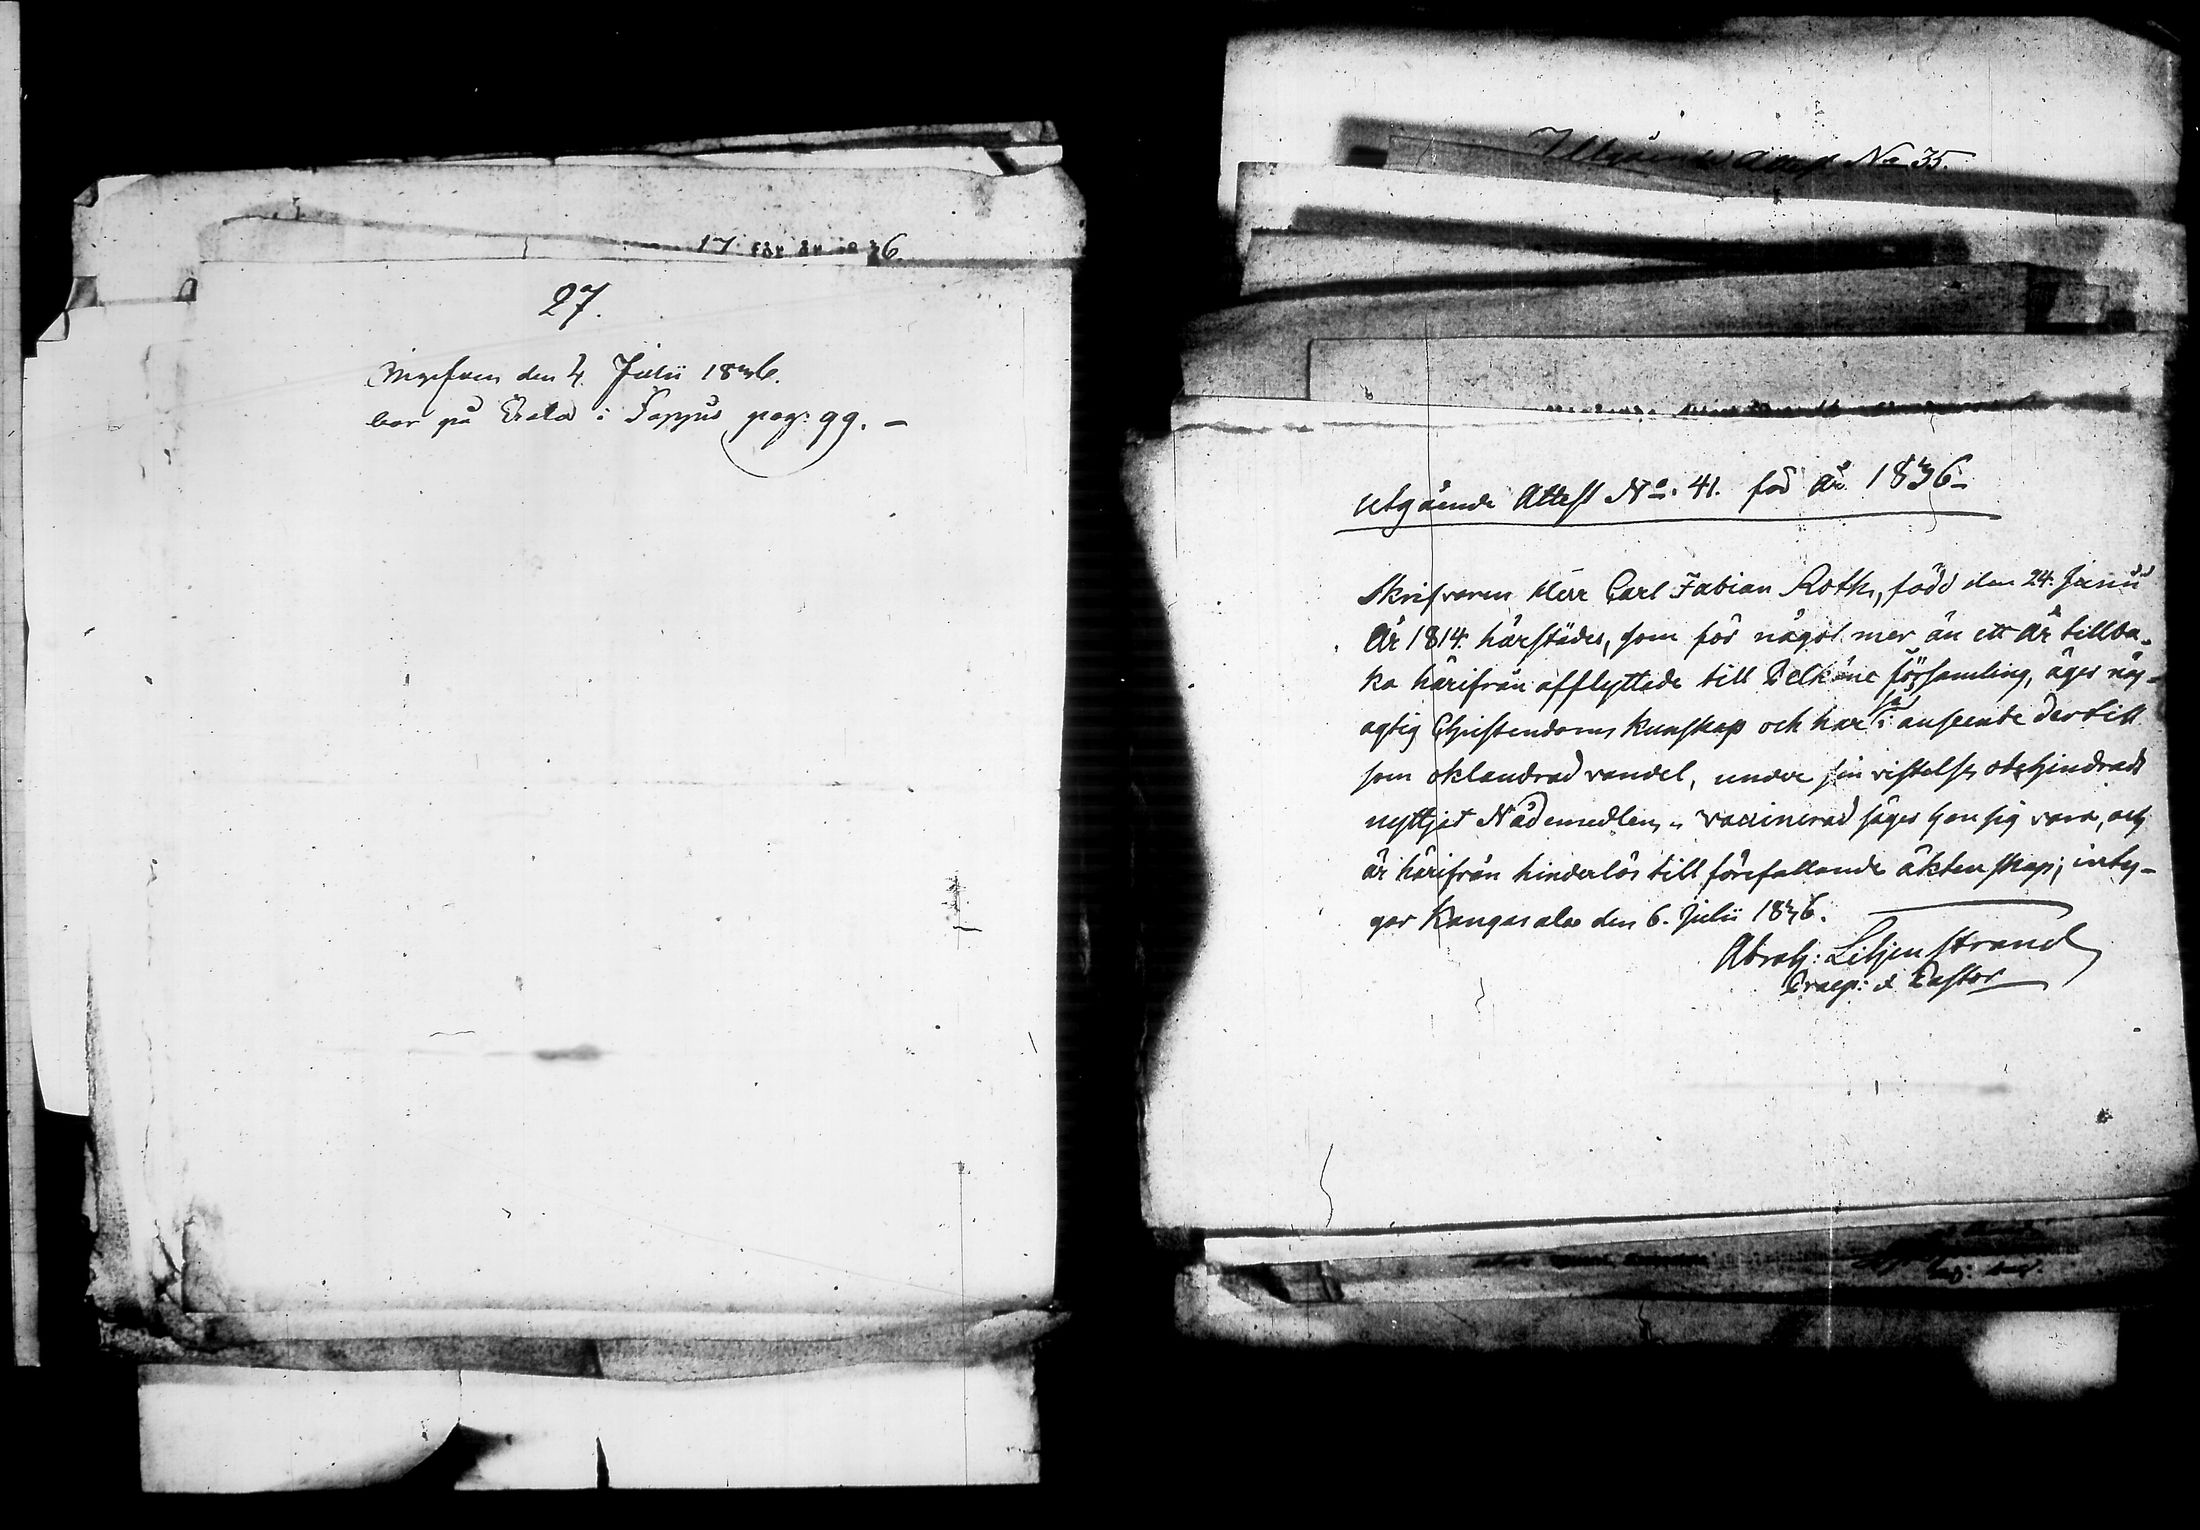 17 för år 1836.
27.
den 4. Julii 1836.
bor på i pag: 99. –
Utgående Attest No 35.
Utgående Attest No. 41. för År 1836.
Skrifvaren Herr Carl Fabian Roth, född den 24. Junii
År 1814. härstädes, som för något mer än ett År tillba-
ka härifrån afflyttade till Pelkäne församling, äger nöj-
agtig Christendoms kunskap och har i anseende dertill
som oklandrad vandel, under sin vistelse obehindradt
nyttjat Nådemedlen, vaccinerad säges han sig vara, och
är härifrån hinderlös till förefallande äktenskap; inty-
gar Kangasala den 6. Julii 1836.
Abrah: Liljenstrand
Praep: & Pastor